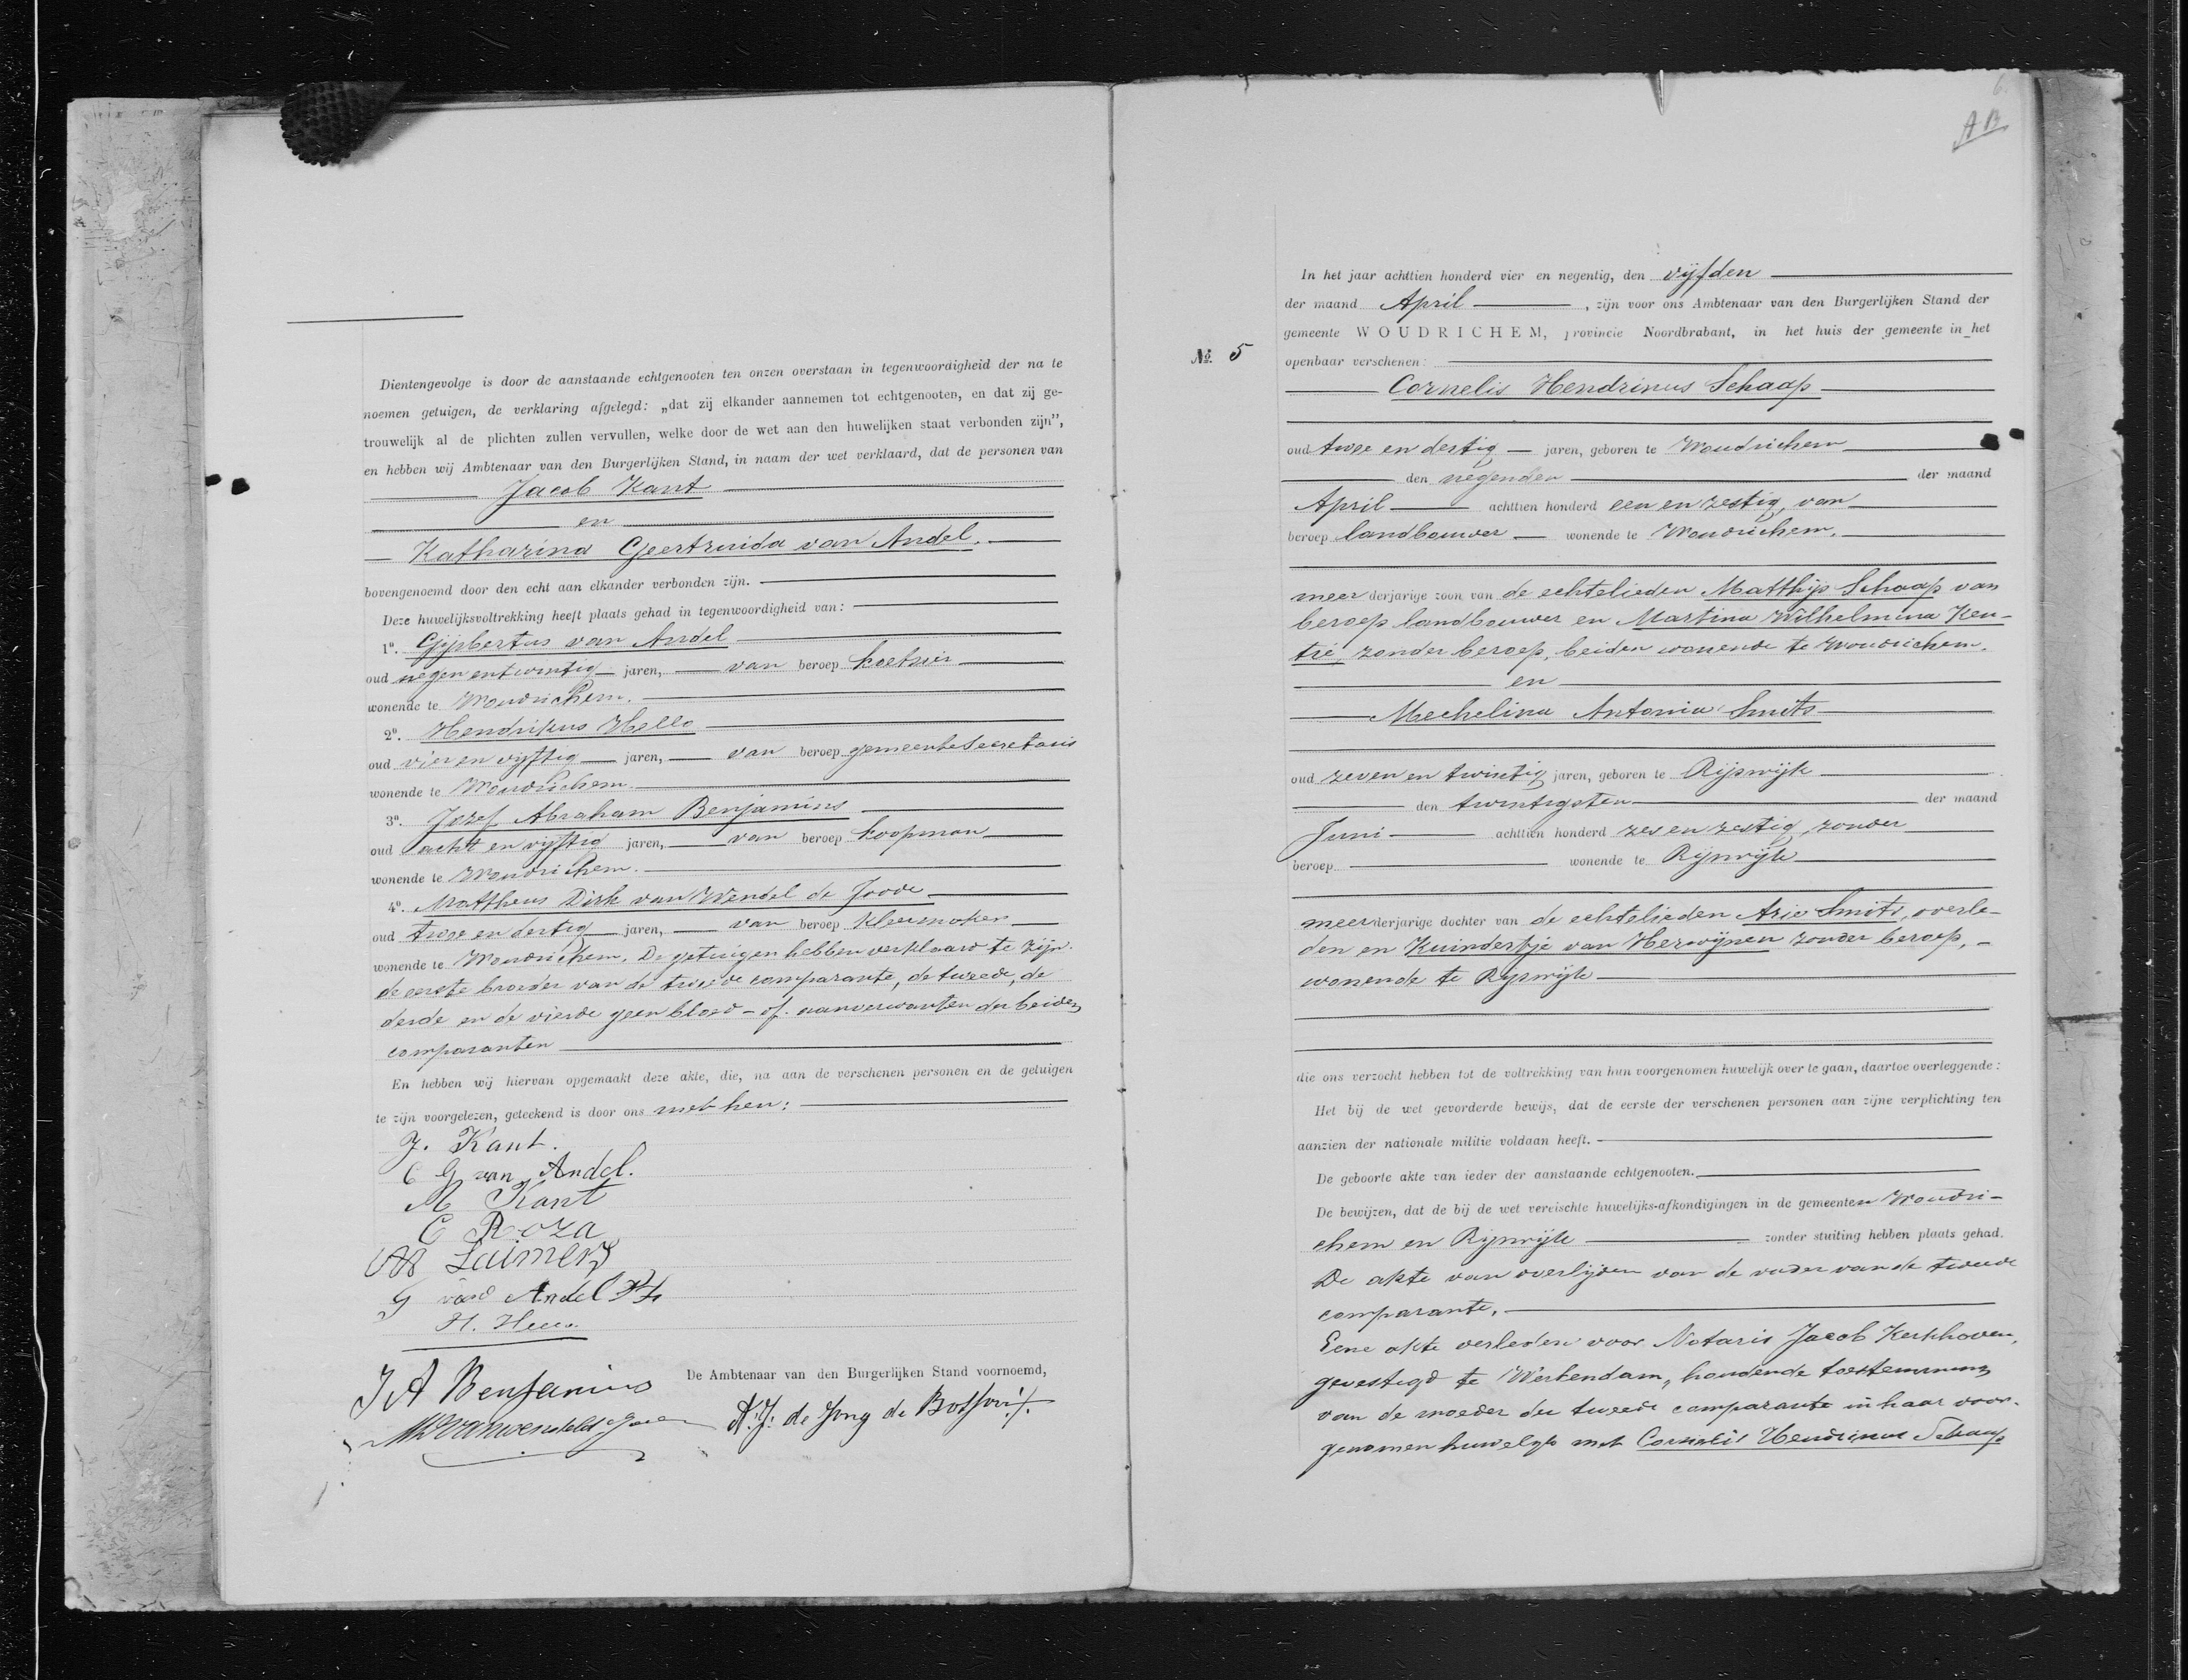 Dientengevolge is door de aanstaande echtgenooten ten onzen overstaan in tegenwoordigheid der na te
noemen getuigen, de verklaring afgelegd: „dat zij elkander aannemen tot echtgenooten, en dat zij ge-
trouwelijk al de plichten zullen vervullen, welke door de wet aan den huwelijken staat verbonden zijn”,
en hebben wij Ambtenaar van den Burgerlijken Stand, in naam der wet verklaard, dat de personen van
Jacob Kant
en
Katharina Geertruida van Andel.
bovengenoemd door den echt aan elkander verbonden zijn.
Deze huwelijksvoltrekking heeft plaats gehad in tegenwoordigheid van:
1º. Gijsbertus van Andel
oud negen entwintig jaren, van beroep koetsier
wonende te Woudrichem.
2º. Hendrikus Hello
oud vier en vijftig jaren, van beroep gemeente Secretaris
wonende te Woudrichem.
3º. Jozef Abraham Benjamins
oud acht en vijftig jaren, van beroep koopman
wonende te Woudrichem.
4º. Mattheus Dirk van Wendel de Joode
oud twee en dertig jaren, van beroep kleermaker
wonende te Woudrichem. De getuigen hebben verklaard te zijn:
de eerste broeder van de tweede comparante, de tweede, de
derde en de vierde geen bloed- of aanverwanten der beiden
comparanten
En hebben wij hiervan opgemaakt deze akte, die, na aan de verschenen personen en de getuigen
te zijn voorgelezen, geteekend is door ons met hen:
J. Kant.
C G van Andel.
M Kant
C Roza
Laimers
G van Andel
H. Hello
J A Benjamins
De Ambtenaar van den Burgerlijken Stand voornoemd,
MD van Wendel de Joode
de Jong de
AB
Nº. 5
In het jaar achttien honderd vier en negentig, den vijfden
der maand April, zijn voor ons Ambtenaar van den Burgerlijken Stand der
gemeente WOUDRICHEM, provincie Noordbrabant, in het huis der gemeente in het
openbaar verschenen:
Cornelis Hendrinus Schaap
oud twee en dertig jaren, geboren te Woudrichem
den negenden der maand
April achttien honderd een en zestig, van
beroep landbouwer wonende te Woudrichem.
meerderjarige zoon van de echtelieden Matthijs Schaap van
beroep landbouwer en Martina Wilhelmina Ken-
trie, zonder beroep, beiden wonende te Woudrichem.
en
Mechelina Antonia Smits
oud zeven en twintig jaren, geboren te Rijswijk
den twintigsten der maand
Juni achttien honderd zes en zestig, zonder
beroep wonende te Rijswijk
meerderjarige dochter van de echtelieden Arie Smits, overle-
den en Kuindertje van Herwijnen zonder beroep,
wonende te Rijswijk
die ons verzocht hebben tot de voltrekking van hun voorgenomen huwelijk over te gaan, daartoe overleggende:
Het bij de wet gevorderde bewijs, dat de eerste der verschenen personen aan zijne verplichting ten
aanzien der nationale militie voldaan heeft.
De geboorte akte van ieder der aanstaande echtgenooten.
De bewijzen, dat de bij de wet vereischte huwelijks-afkondigingen in de gemeenten Woudri-
chem en Rijswijk zonder stuiting hebben plaats gehad.
De akte van overlijden van de vader van de tweede
comparante.
Eene akte verleden voor Notaris Jacob Kerkhoven,
gevestigd te Werkendam, houdende toestemming
van de moeder der tweede comparante in haar voor-
genomen huwelijk met Cornelis Hendrinus Schaap